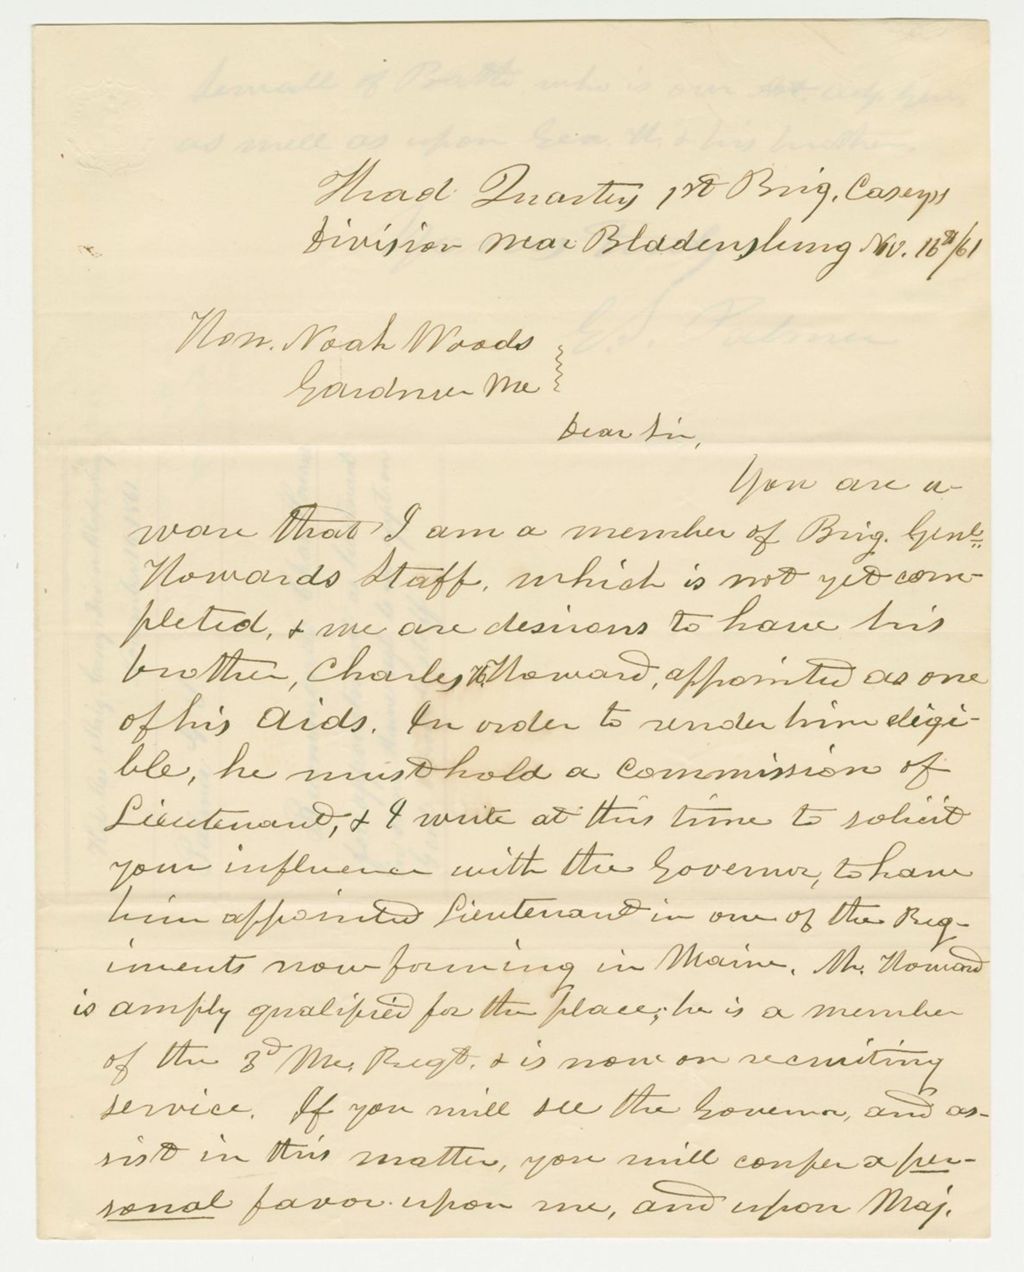 Head Quarters 1st Brig. Caseys
Division near Bladensburg Nov. 16th/61
Hon. Noah Woods
Gardiner Me
Dear Sir,
You are a-
ware that I am a member of Brig. Genls
Howards Staff, which is not yet com-
pleted, & we are desirous to have his
brother, Charles H. Howard, appointed as one
of his Aids. In order to render him eligi-
ble, he must hold a commission of
Lieutenant, & I write at this time to solicit
your influence with the Governor, to have
him appointed Lieutenant in one of the Reg-
iments now forming in Maine. Mr. Howard
is amply qualified for the place; he is a member
of the 3d Me. Regt. & is now on recruiting
service. If you will see the Governor, and as-
sist in this matter, you will confer a per-
sonal favor upon me, and upon Maj.